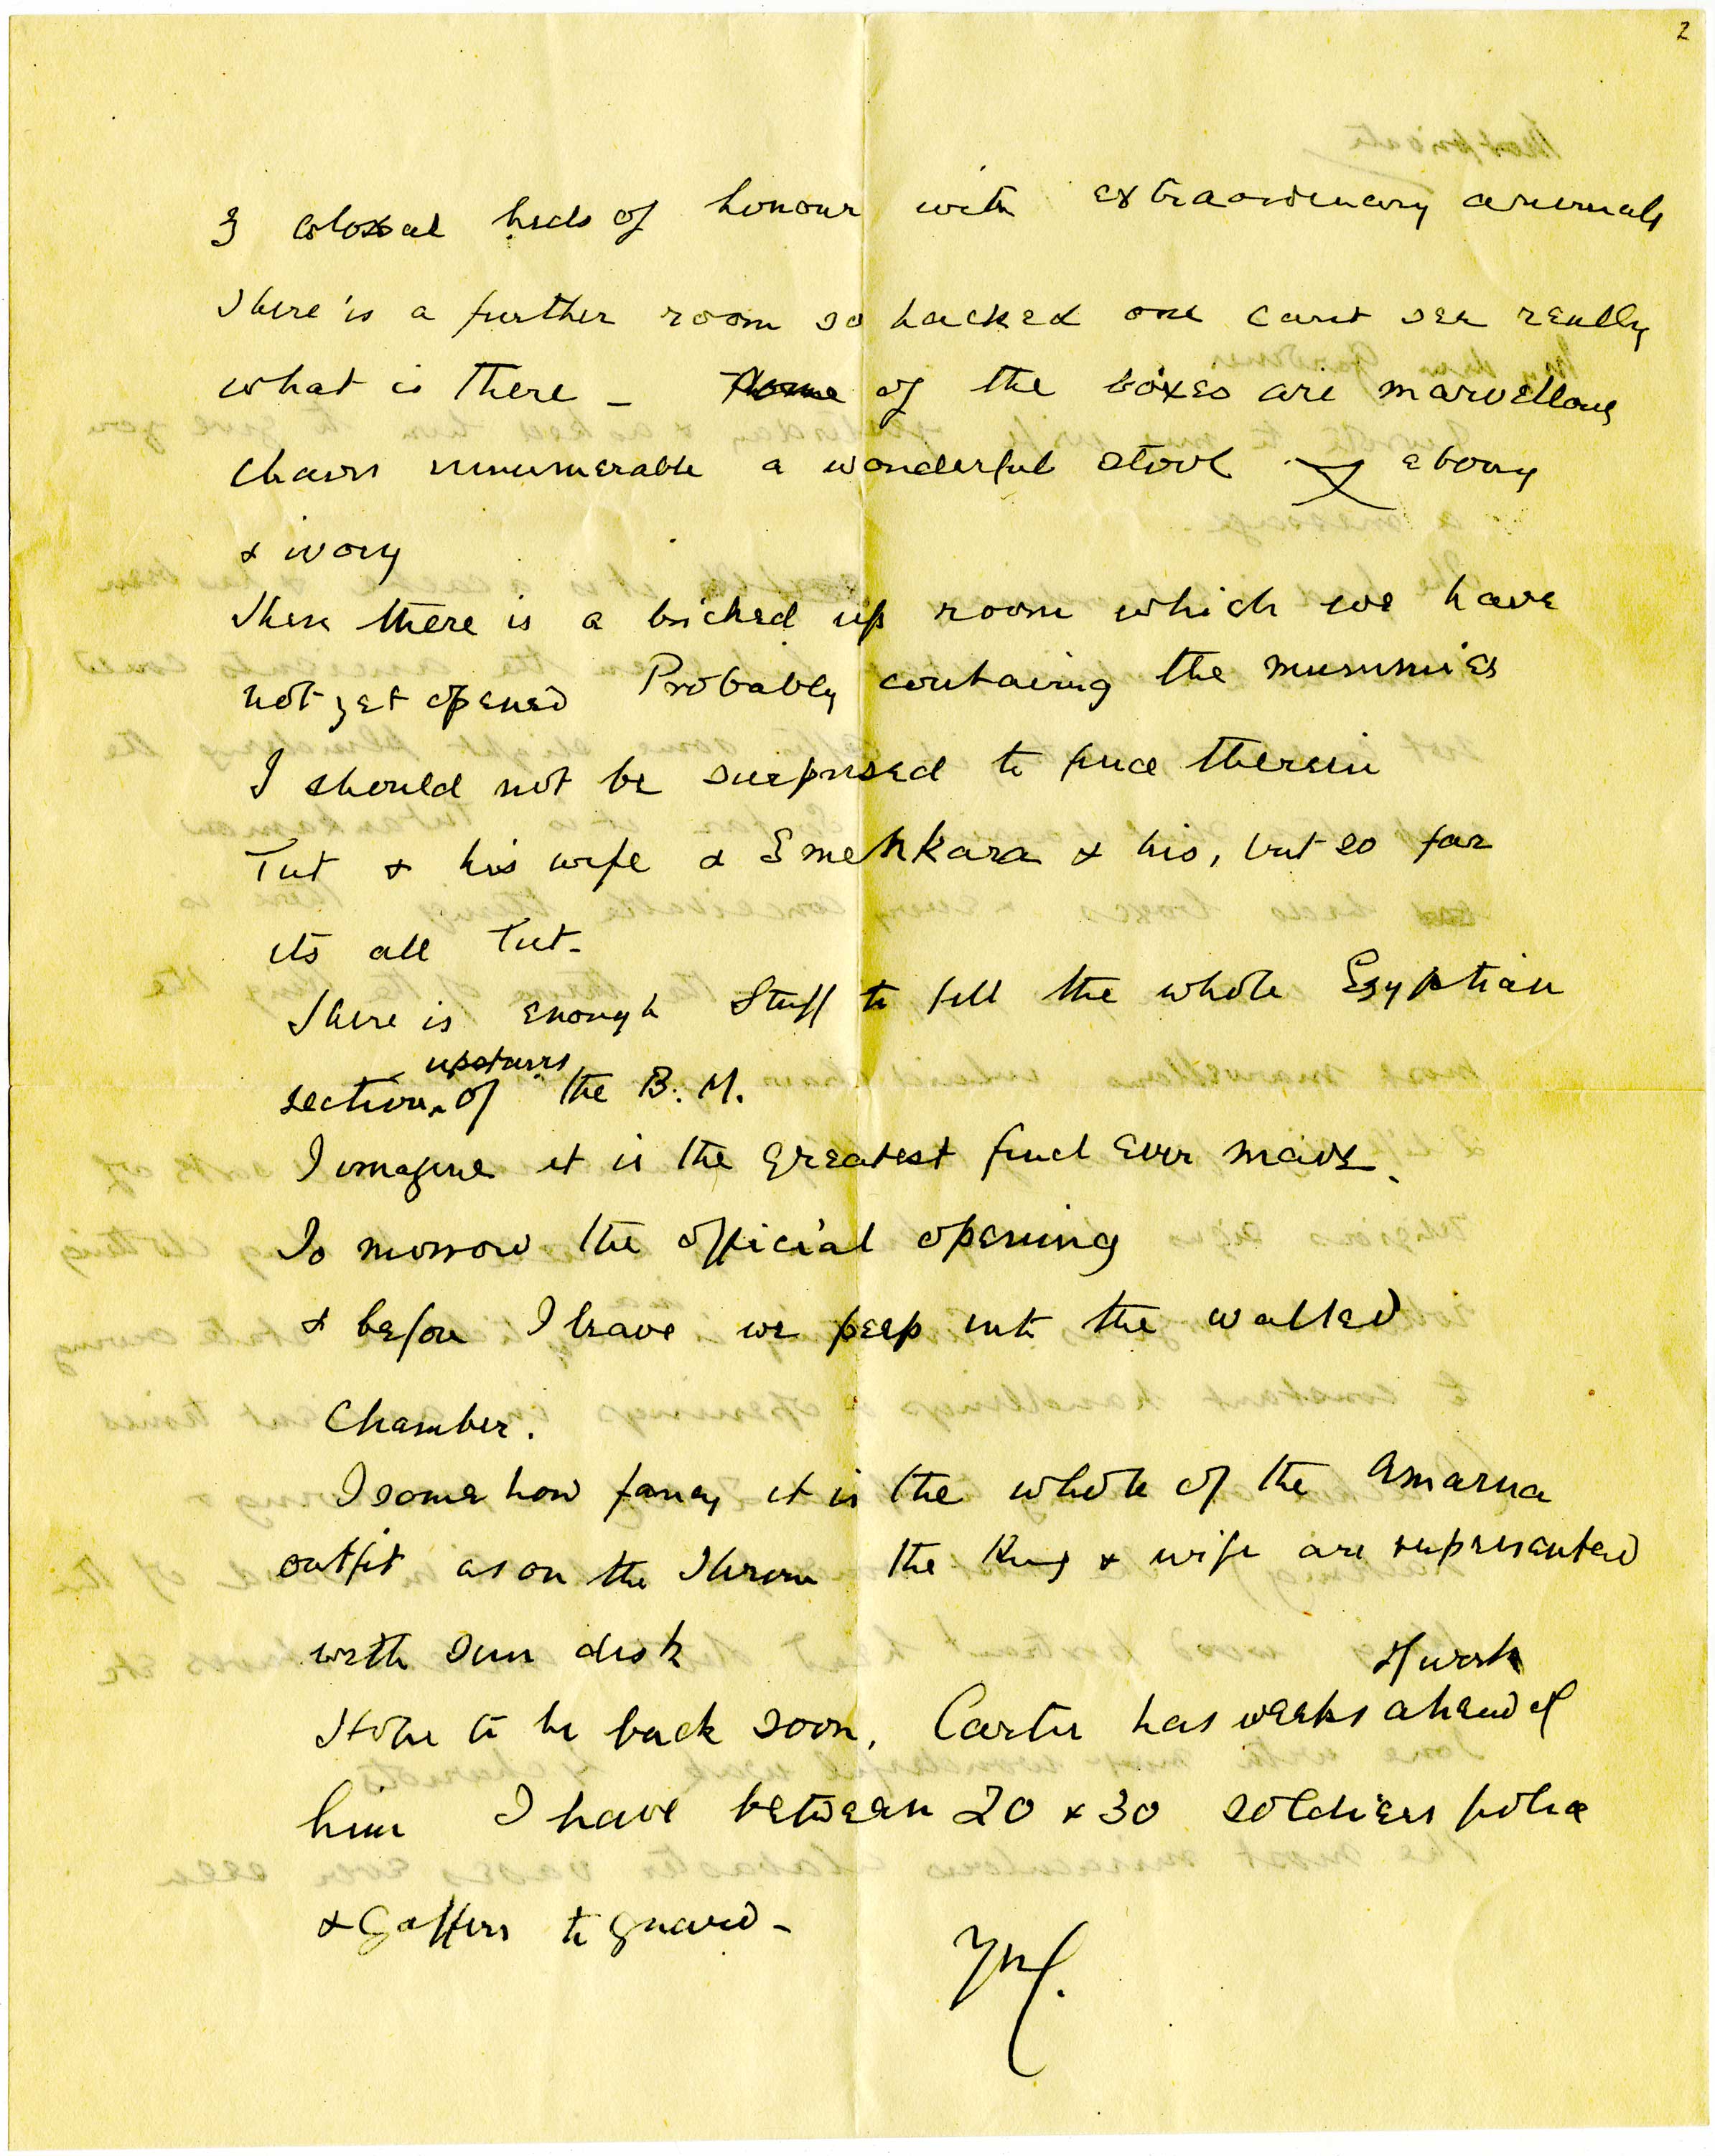 2
3 colossal beds of honour with extraordinary animals
There is a further room so packed one cant see really
what is there _ Some of the boxes are marvellous
chairs innumerable a wonderful stool ebony
& ivory
Then there is a bricked up room which we have
not yet opened Probably containing the mummies
I should not be surprised to find therein
Tut & his wife & Smenkara & his, but so far
its all Tut-
There is enough stuff to fill the whole Egyptian
section upstairs of the B. M.
I imagine it is the greatest find ever made.
To morrow the official opening
& before I leave we peep into the walled
Chamber.
I some how fancy it is the whole of the Amarna
outfit as on the Throne the King & wife are represented
with sun disk
I hope to be back soon. Carter has weeks of work ahead of
him I have between 20 & 30 soldiers police
& Gaffirs to guard-